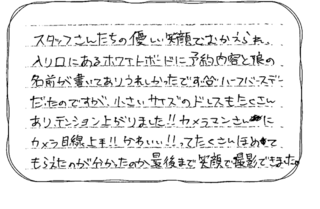 スタッフさんたちの優しい笑顔でむかえられ、
入り口にあるホワイトボードに予約内容と娘の
名前が書いてありうれしかったです。ハーフバースデー
だったのですが、小さいサイズのドレスもたくさん
あり、テンション上がりました!!カメラマンさんに
カメラ目線上手!!かわいい!!ってたくさんほめて
もらえたのが分かったのか、最後まで笑顔で撮影できました。